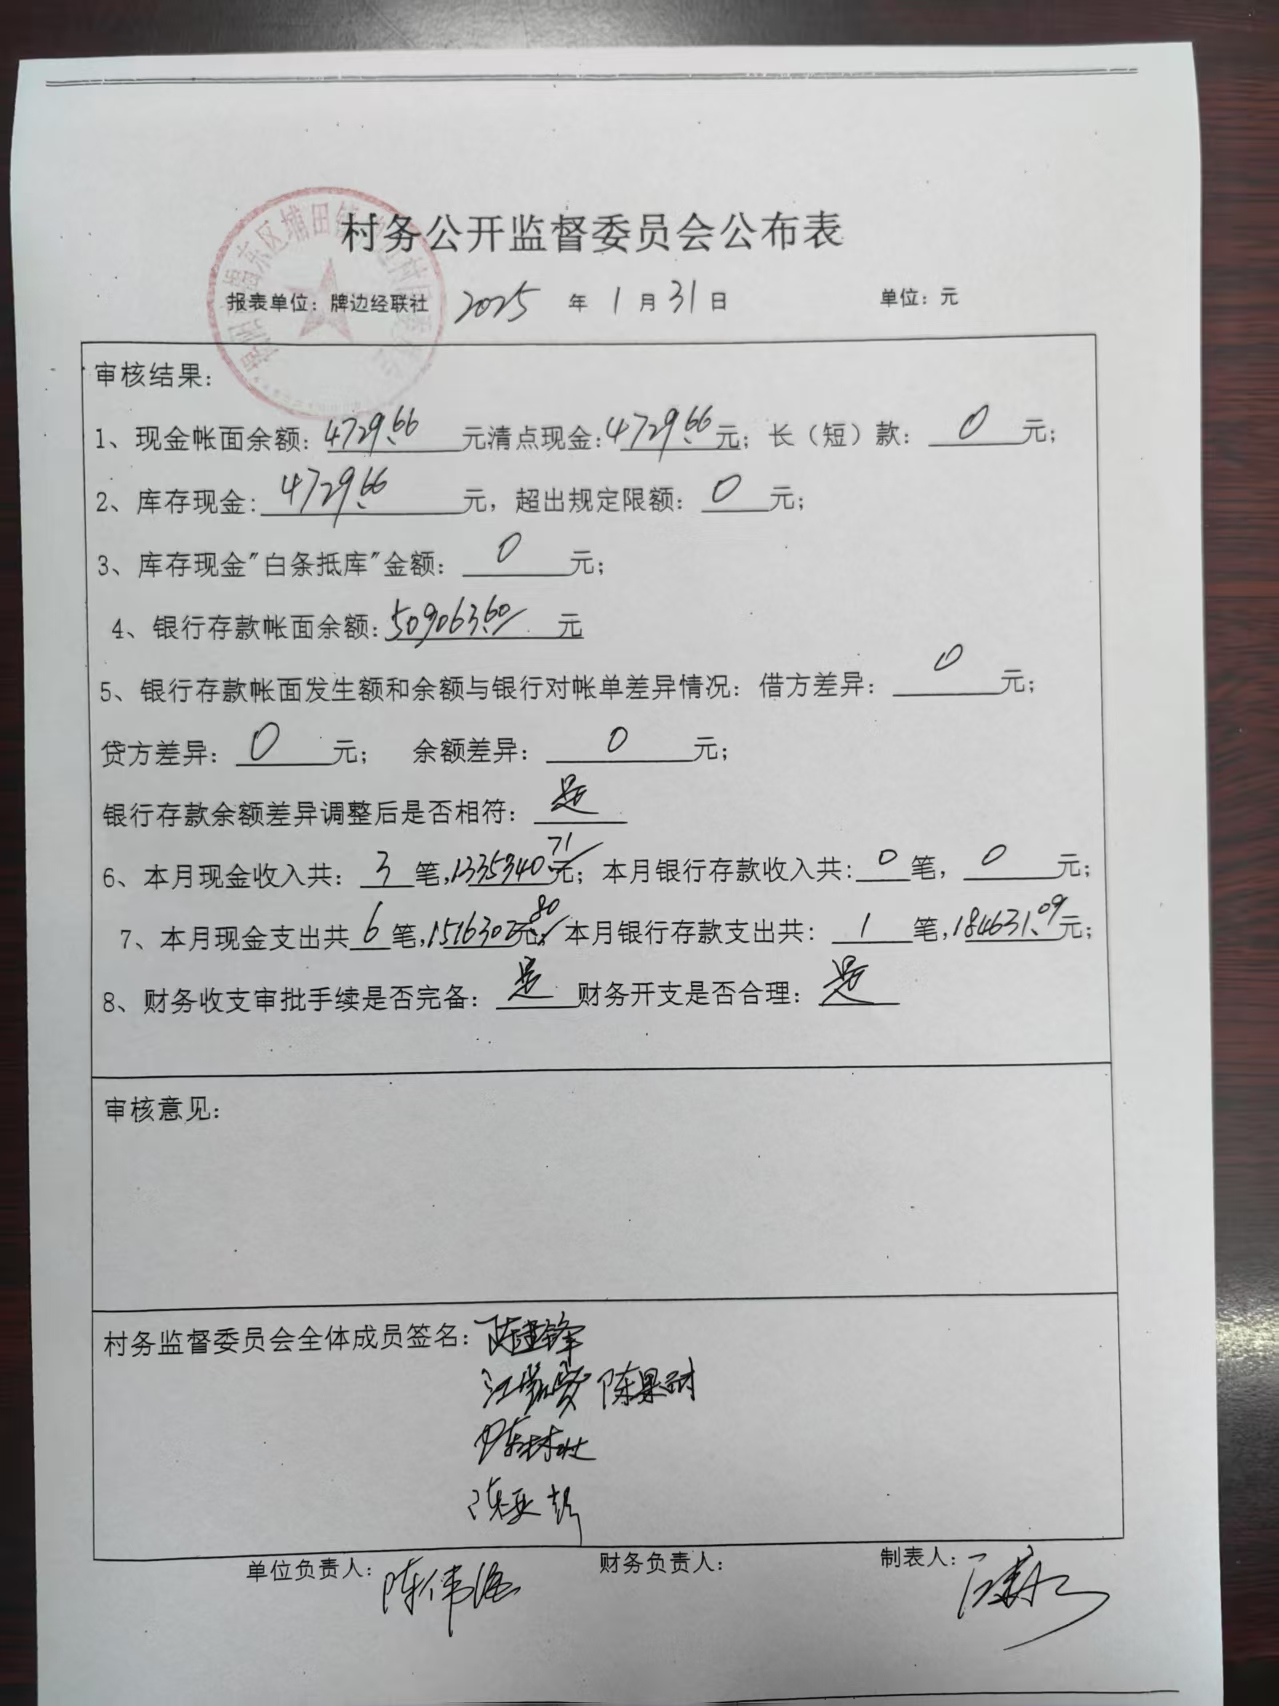 村务公开监督委员会公布表
报表单位：牌边经联社 2025 年 1 月 31 日 单位：元
审核结果：
1、现金帐面余额：4729.66 元清点现金：4729.66 元；长（短）款：0 元；
2、库存现金：4729.66 元，超出规定限额：0 元；
3、库存现金"白条抵库"金额：0 元；
4、银行存款帐面余额：509063.60 元
5、银行存款帐面发生额和余额与银行对帐单差异情况：借方差异：0 元；
贷方差异：0 元； 余额差异：0 元；
银行存款余额差异调整后是否相符：是
6、本月现金收入共：3 笔，1335340.71 元；本月银行存款收入共：0 笔，0 元；
7、本月现金支出共 6 笔，元；本月银行存款支出共：1 笔，184631.09 元；
8、财务收支审批手续是否完备：是 财务开支是否合理：是
审核意见：
村务监督委员会全体成员签名：陈建锋
陈果树
陈林壮
单位负责人：陈伟 财务负责人： 制表人：